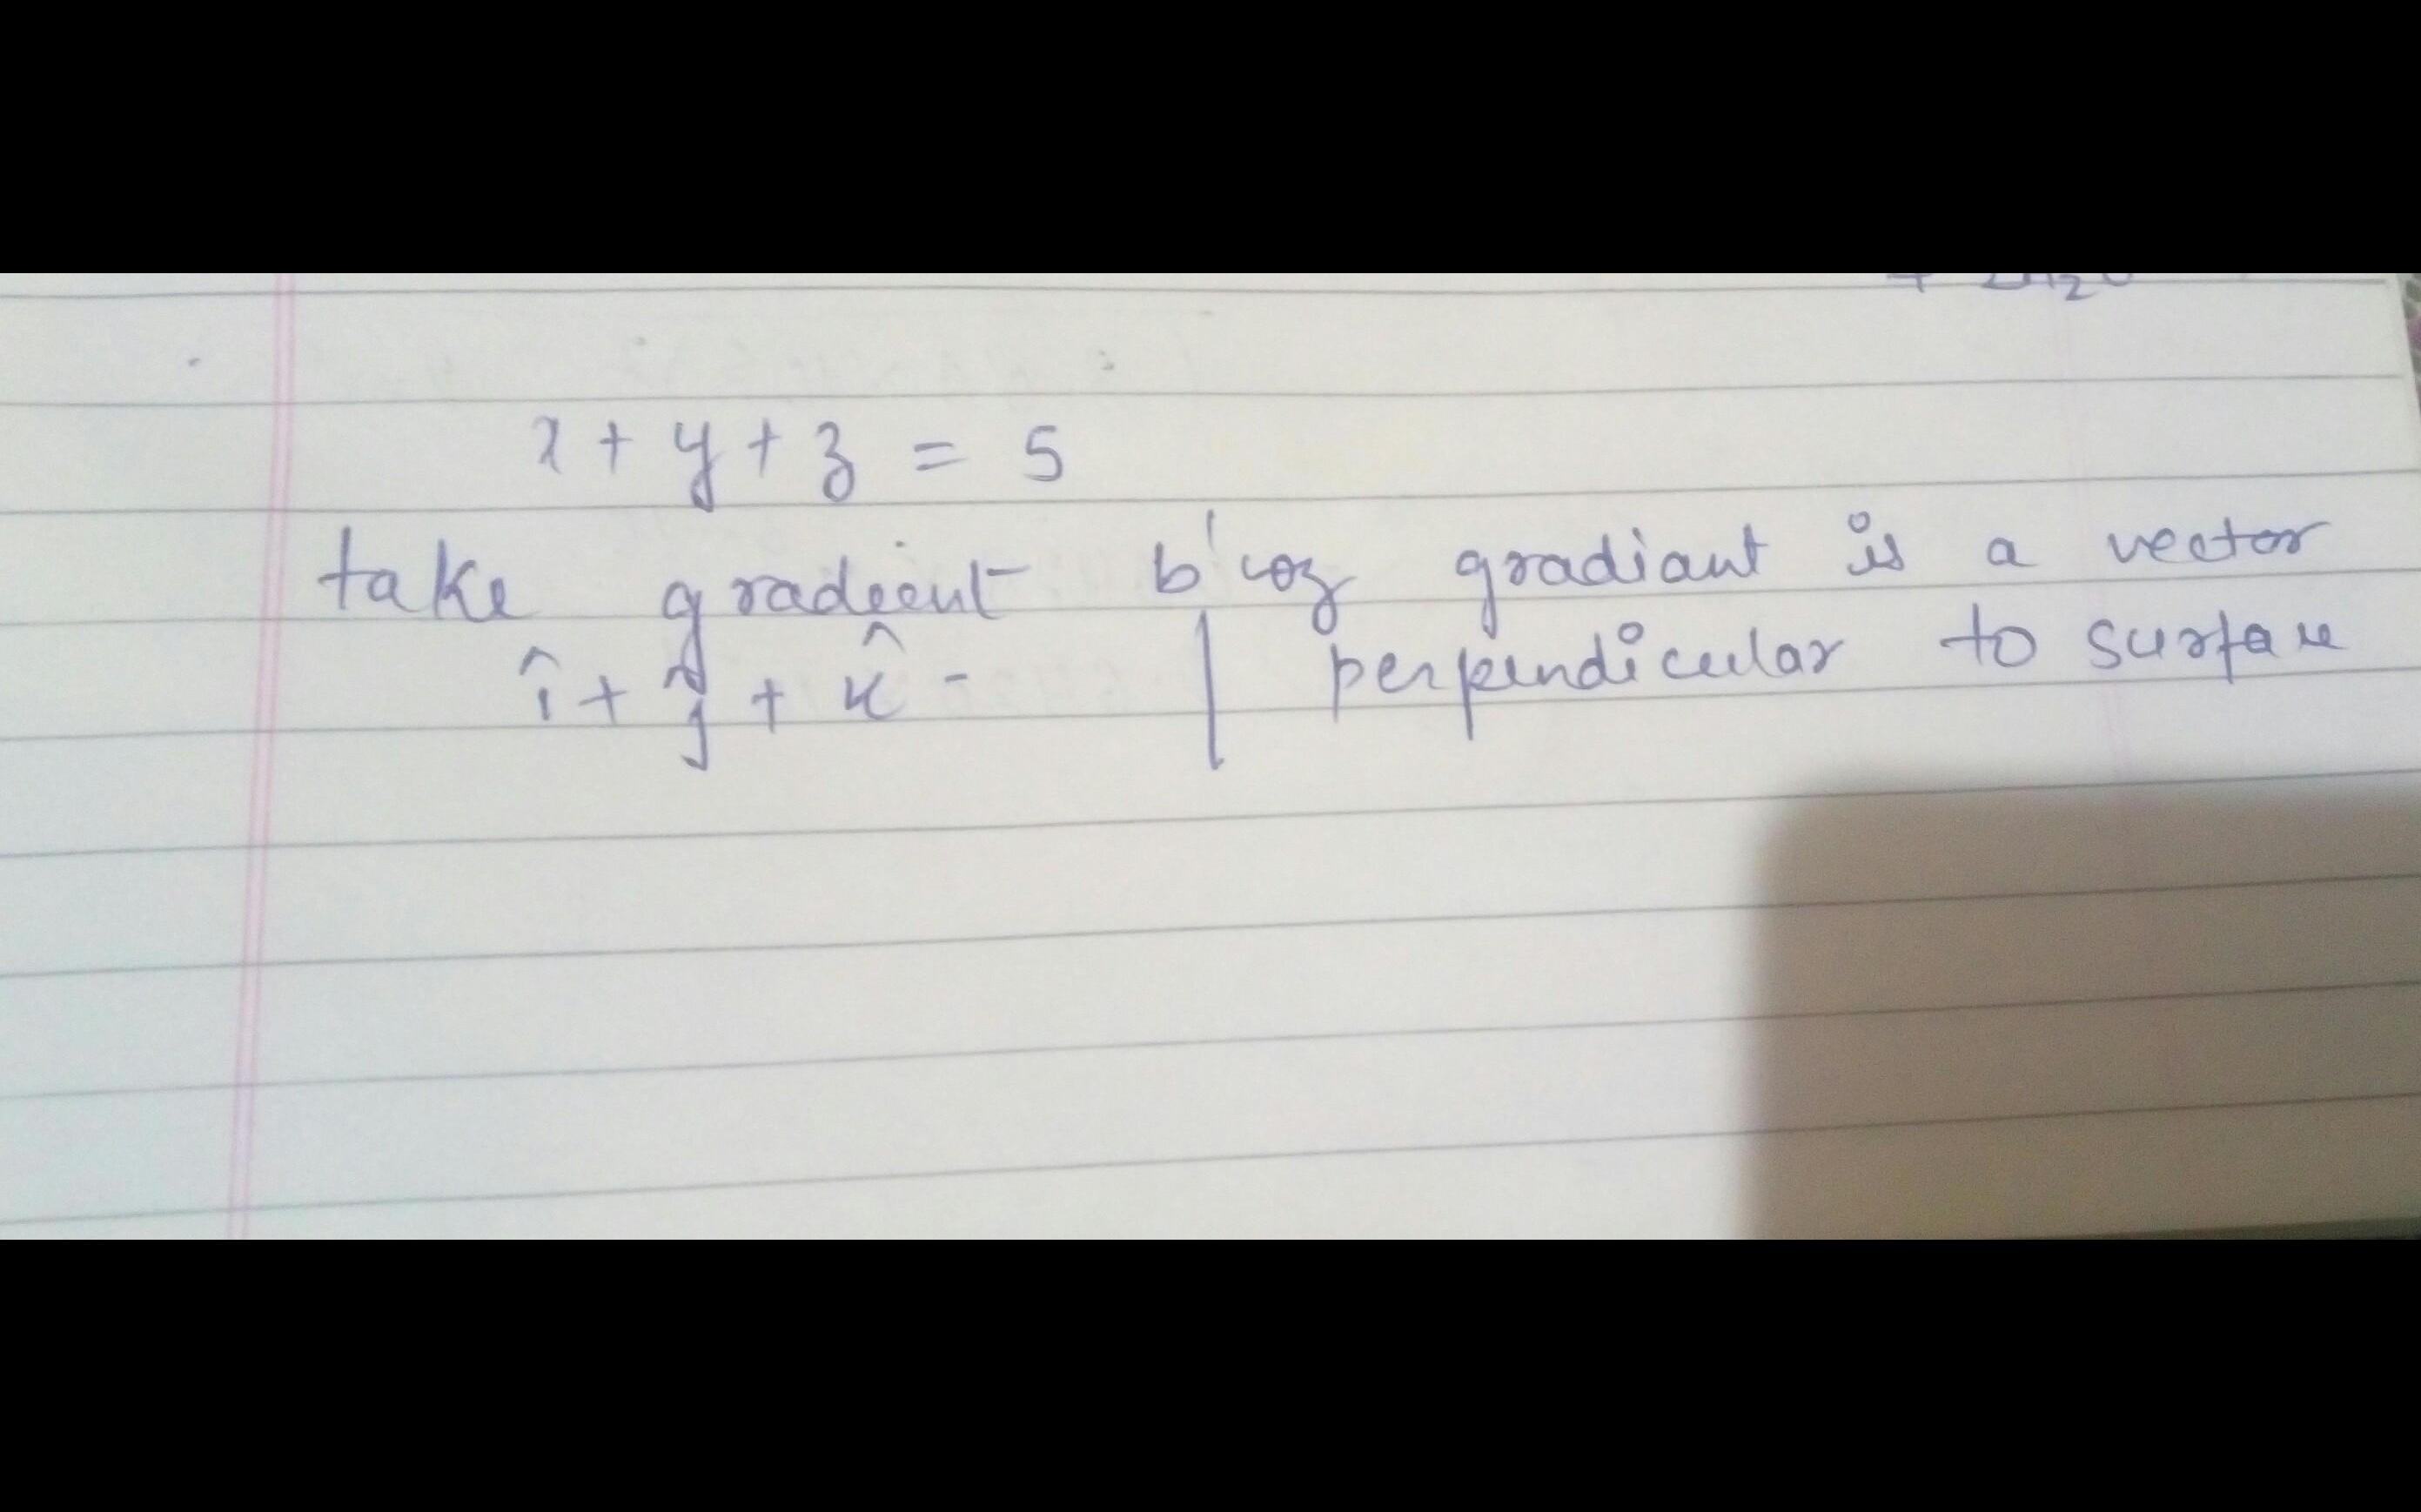 x + y + z = 5
take gradient b'coz gradiant is a vector
î + ĵ + k̂ - | perpendicular to surface